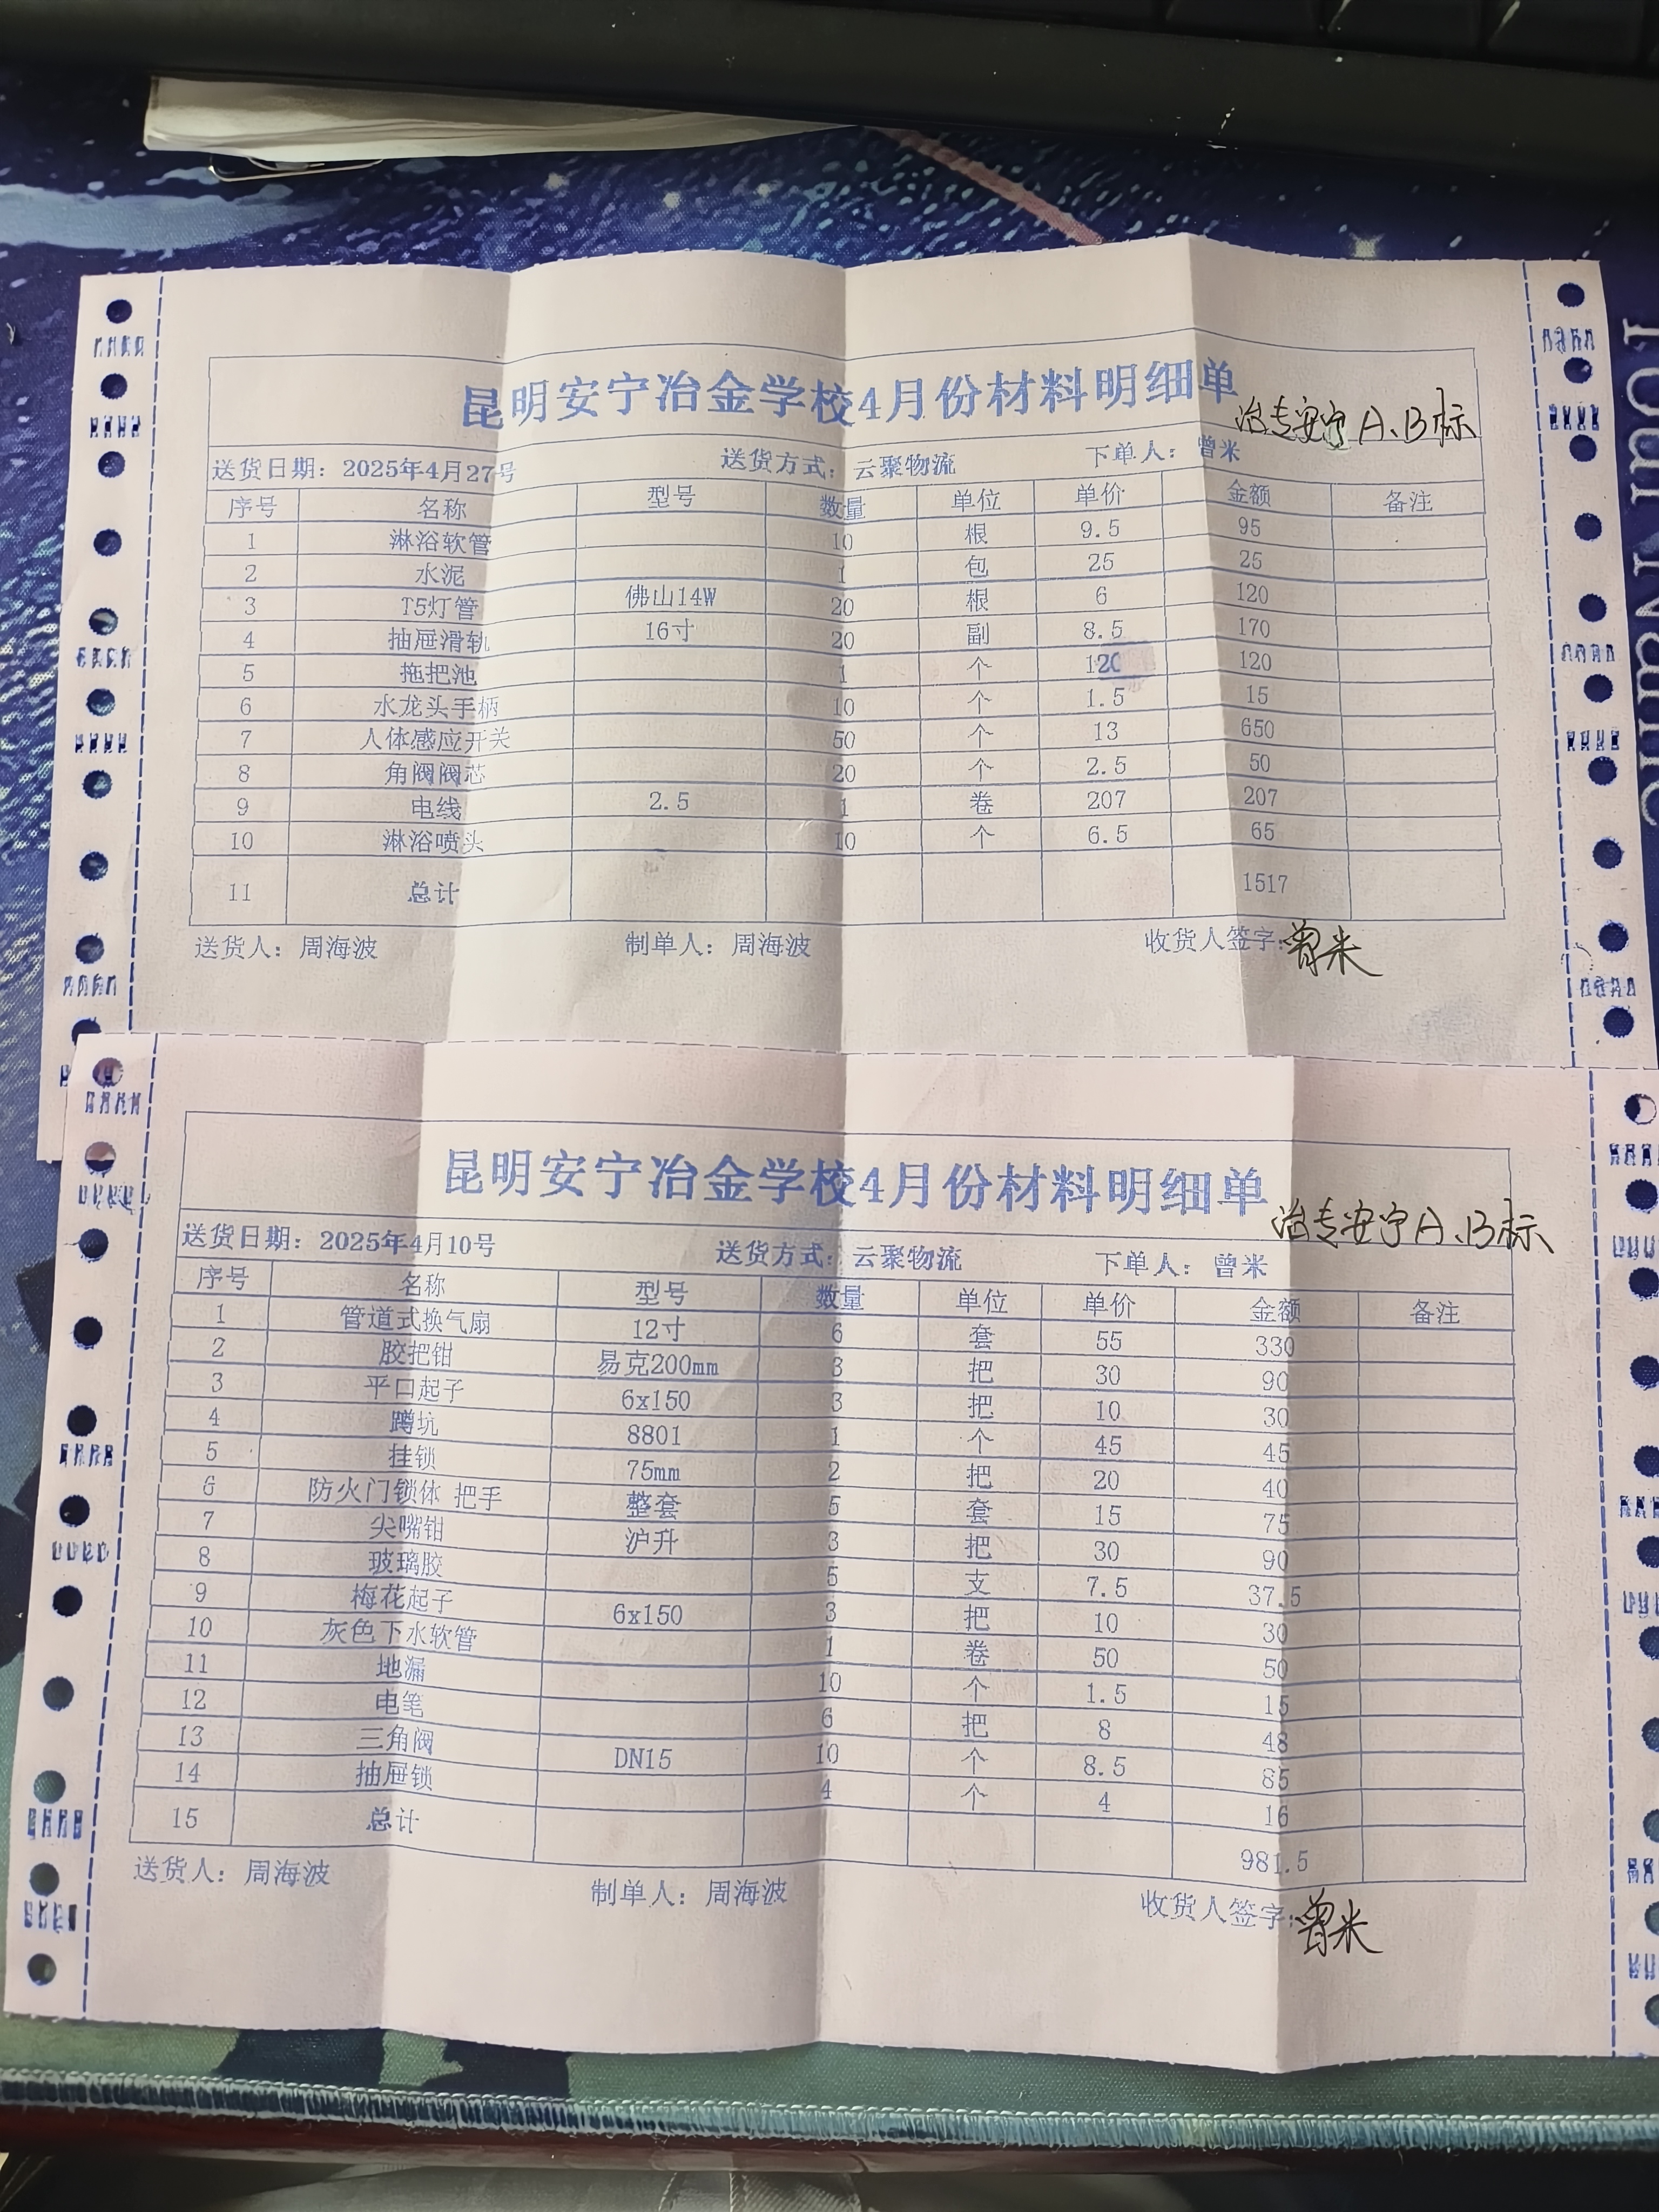 昆明安宁冶金学校4月份材料明细单
冶专安宁A、B标
送货日期：2025年4月27号 送货方式：云聚物流 下单人：曾米
序号 名称 型号 数量 单位 单价 金额 备注
1 淋浴软管 10 根 9.5 95
2 水泥 1 包 25 25
3 T5灯管 佛山14W 20 根 6 120
4 抽屉滑轨 16寸 20 副 8.5 170
5 拖把池 1 个 120 120
6 水龙头手柄 10 个 1.5 15
7 人体感应开关 50 个 13 650
8 角阀阀芯 20 个 2.5 50
9 电线 2.5 1 卷 207 207
10 淋浴喷头 10 个 6.5 65
11 总计 1517
送货人：周海波 制单人：周海波 收货人签字：曾米
昆明安宁冶金学校4月份材料明细单
冶专安宁A、B标
送货日期：2025年4月10号 送货方式：云聚物流 下单人：曾米
序号 名称 型号 数量 单位 单价 金额 备注
1 管道式换气扇 12寸 6 套 55 330
2 胶把钳 易克200mm 3 把 30 90
3 平口起子 6x150 3 把 10 30
4 蹲坑 8801 1 个 45 45
5 挂锁 75mm 2 把 20 40
6 防火门锁体 把手 整套 5 套 15 75
7 尖嘴钳 沪升 3 把 30 90
8 玻璃胶 5 支 7.5 37.5
9 梅花起子 6x150 3 把 10 30
10 灰色下水软管 1 卷 50 50
11 地漏 10 个 1.5 15
12 电笔 6 把 8 48
13 三角阀 DN15 10 个 8.5 85
14 抽屉锁 4 个 4 16
15 总计 981.5
送货人：周海波 制单人：周海波 收货人签字：曾米